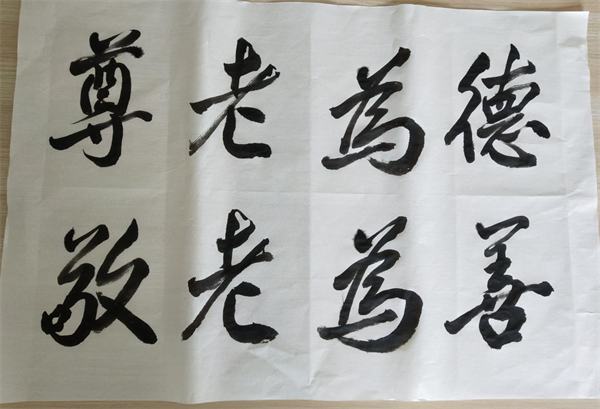 尊老為德
敬老為善